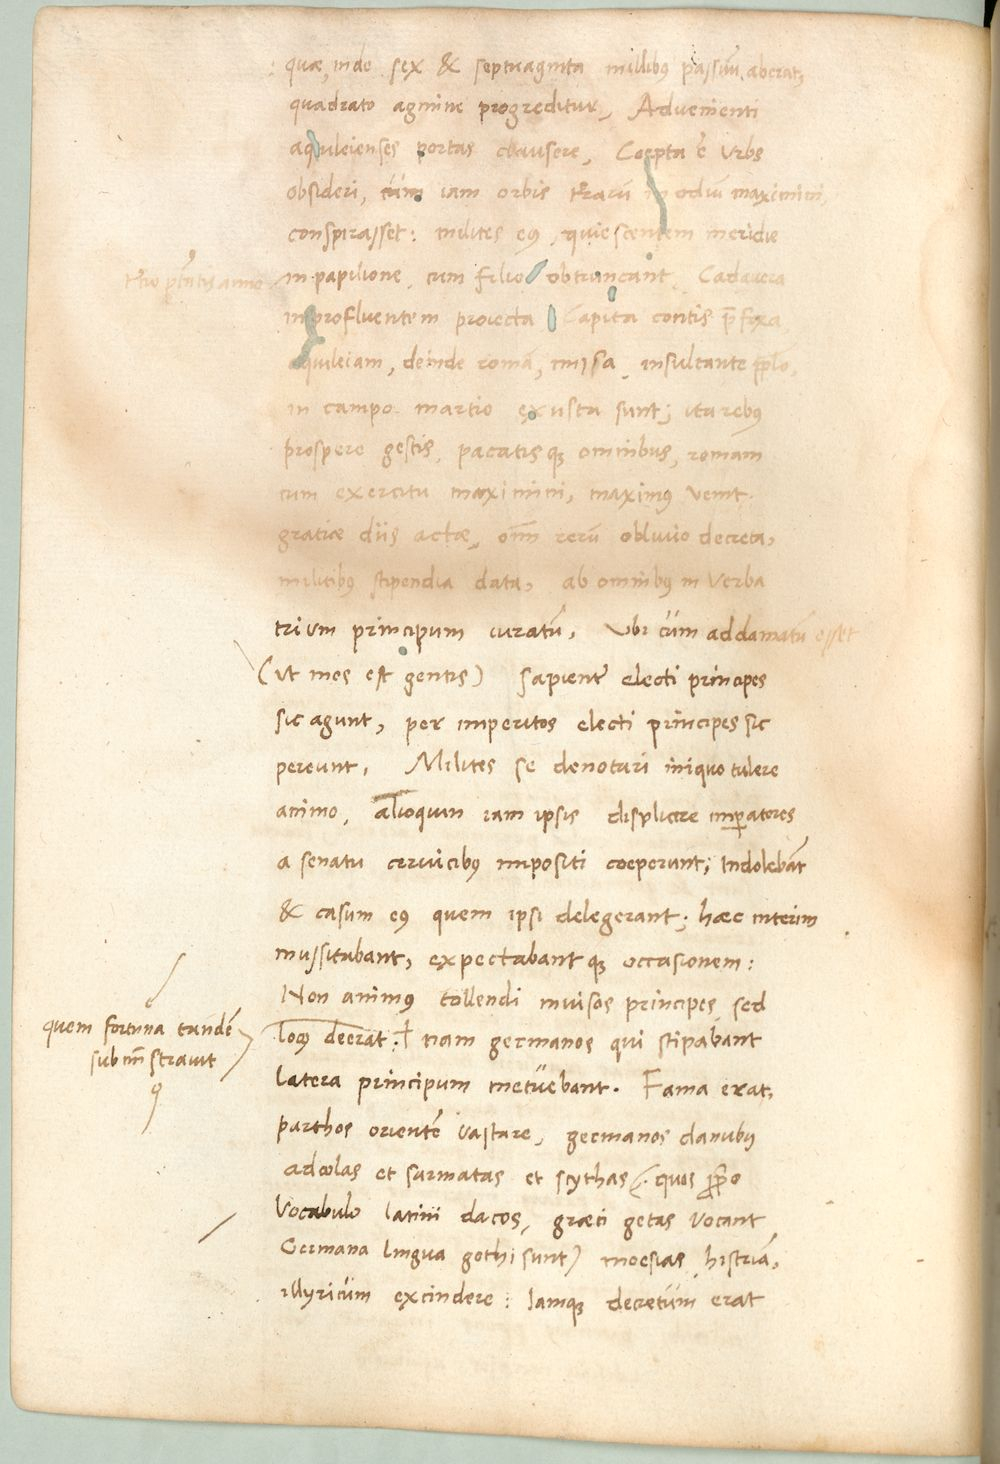 quæ inde sex & septuaginta millibꝰ passuũ aberat,
quadrato agmine progreditur, Advenienti
aquileienses portas clausere, Coepta ẽ Vrbs
obsideri, cũm iam orbis tẽrarũ in odiũ maximini,
conspirasset: milites eꝰ, quiescentem meridie
tẽtio ptatis anno
in papilione, cum filio obtruncant, Cadavera
in profluentem proiecta, Capita contis p̃fixa
aquileiam, deinde romã, missa, insultante pplo,
in campo martio exusta sunt; ita rebꝰ
prospere gestis, pacatis qȝ omnibus, romam
cum exercitu maximini, maximꝰ venit.
gratiæ diis actæ, om̃ rerũ oblivio decreta,
militibꝰ stipendia data, ab omnibꝰ in verba
trium principum iuratũ, Vbi cũm addamatũ esset
(ut mos est gentis) sapienter electi principes
sic agunt, per imperitos electi principes sic
pereunt, Milites se denotari iniquo tulere
animo, alioquin iam ipsis displicere imperatores
a senatu cervicibꝰ impositi coeperunt; Indolebãt
& casum eꝰ quem ipsi delegerant; hæc interim
mussitabant, expectabant qȝ occasionem:
Non animꝰ tollendi invisos principes, sed
quem fortuna tandẽ
subm̃istravit
locꝰ deerat: nam germanos qui stipabant
latera principum metuebant. Fama erat,
parthos orientẽ vastare, germanos danubii
adcolas et sarmatas et scythas (quos pprio
Vocabulo latini dacos, græci getas vocant
Germana lingua gothi sunt) moesias, histriã,
illyricũm excindere: Iamqȝ decretũm erat